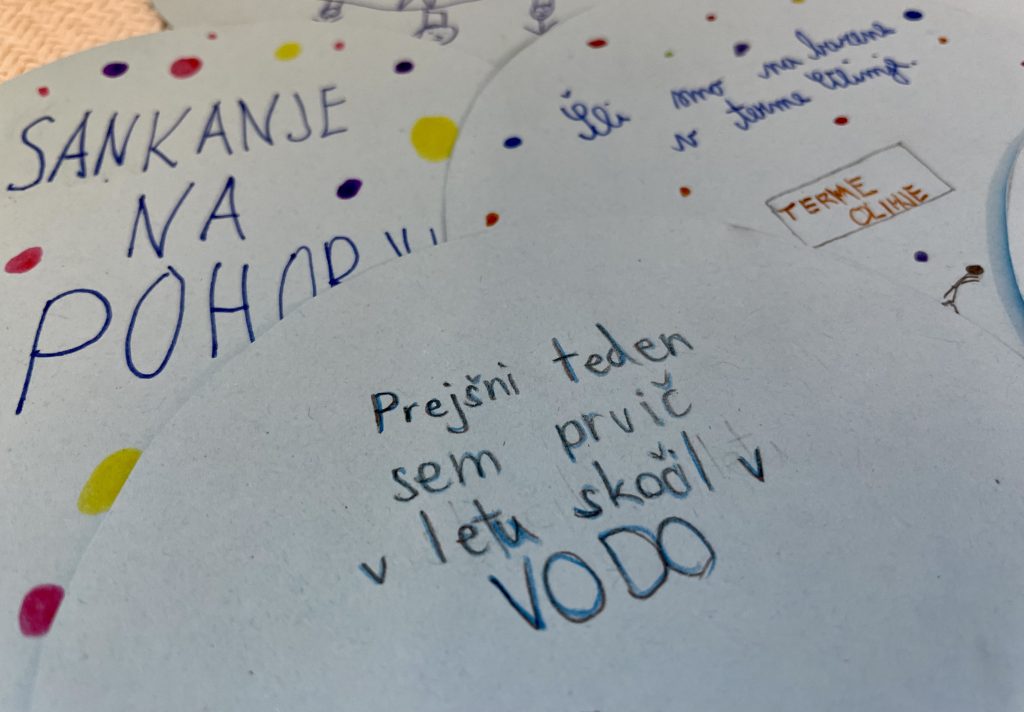 SANKANJE
NA
POHORJU
Šli smo na bazene
v terme Olimje.
TERME
OLIMJE
Prejšni teden
sem prvič
v letu skočil v
VODO